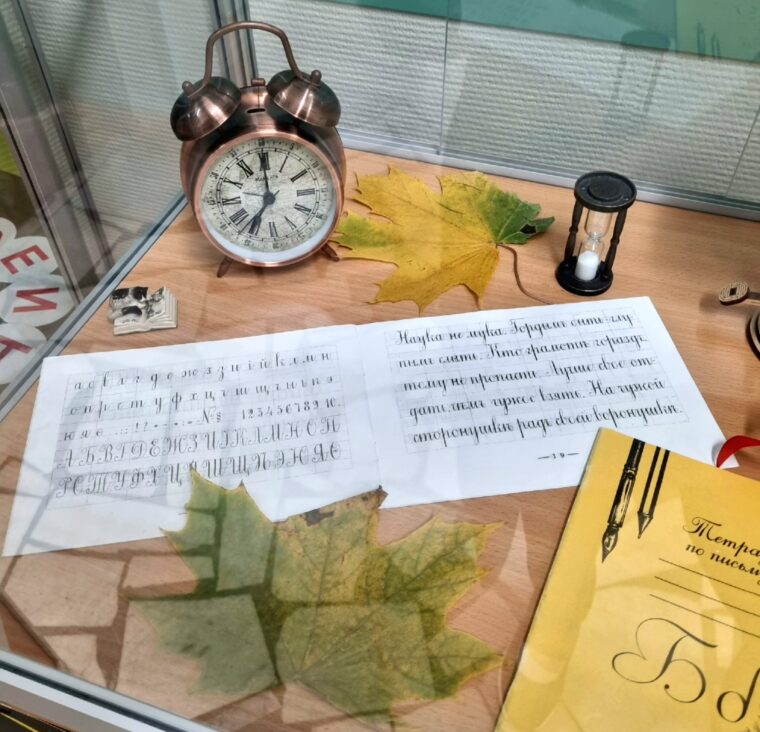 а б в г д е ж з и і й к л м н
о п р с т у ф х ц ч ш щ ъ ы ь ѣ э
ю я ѳ № § 1 2 3 4 5 6 7 8 9 10.
А Б В Г Д Е Ж З И І К Л М Н О П
Р С Т У Ф Х Ц Ч Ш Щ Ѣ Э Ю Я Ѳ
Наука не мука. Гордымъ быть, глу-
пымъ слыть. Кто грамотѣ гораздъ,
тому не пропастъ. Лучше свое от-
дать, чѣмъ чужое взять. На чужой
сторонушкѣ радъ своей воронушкѣ.
—19—
Тетрад
по письм